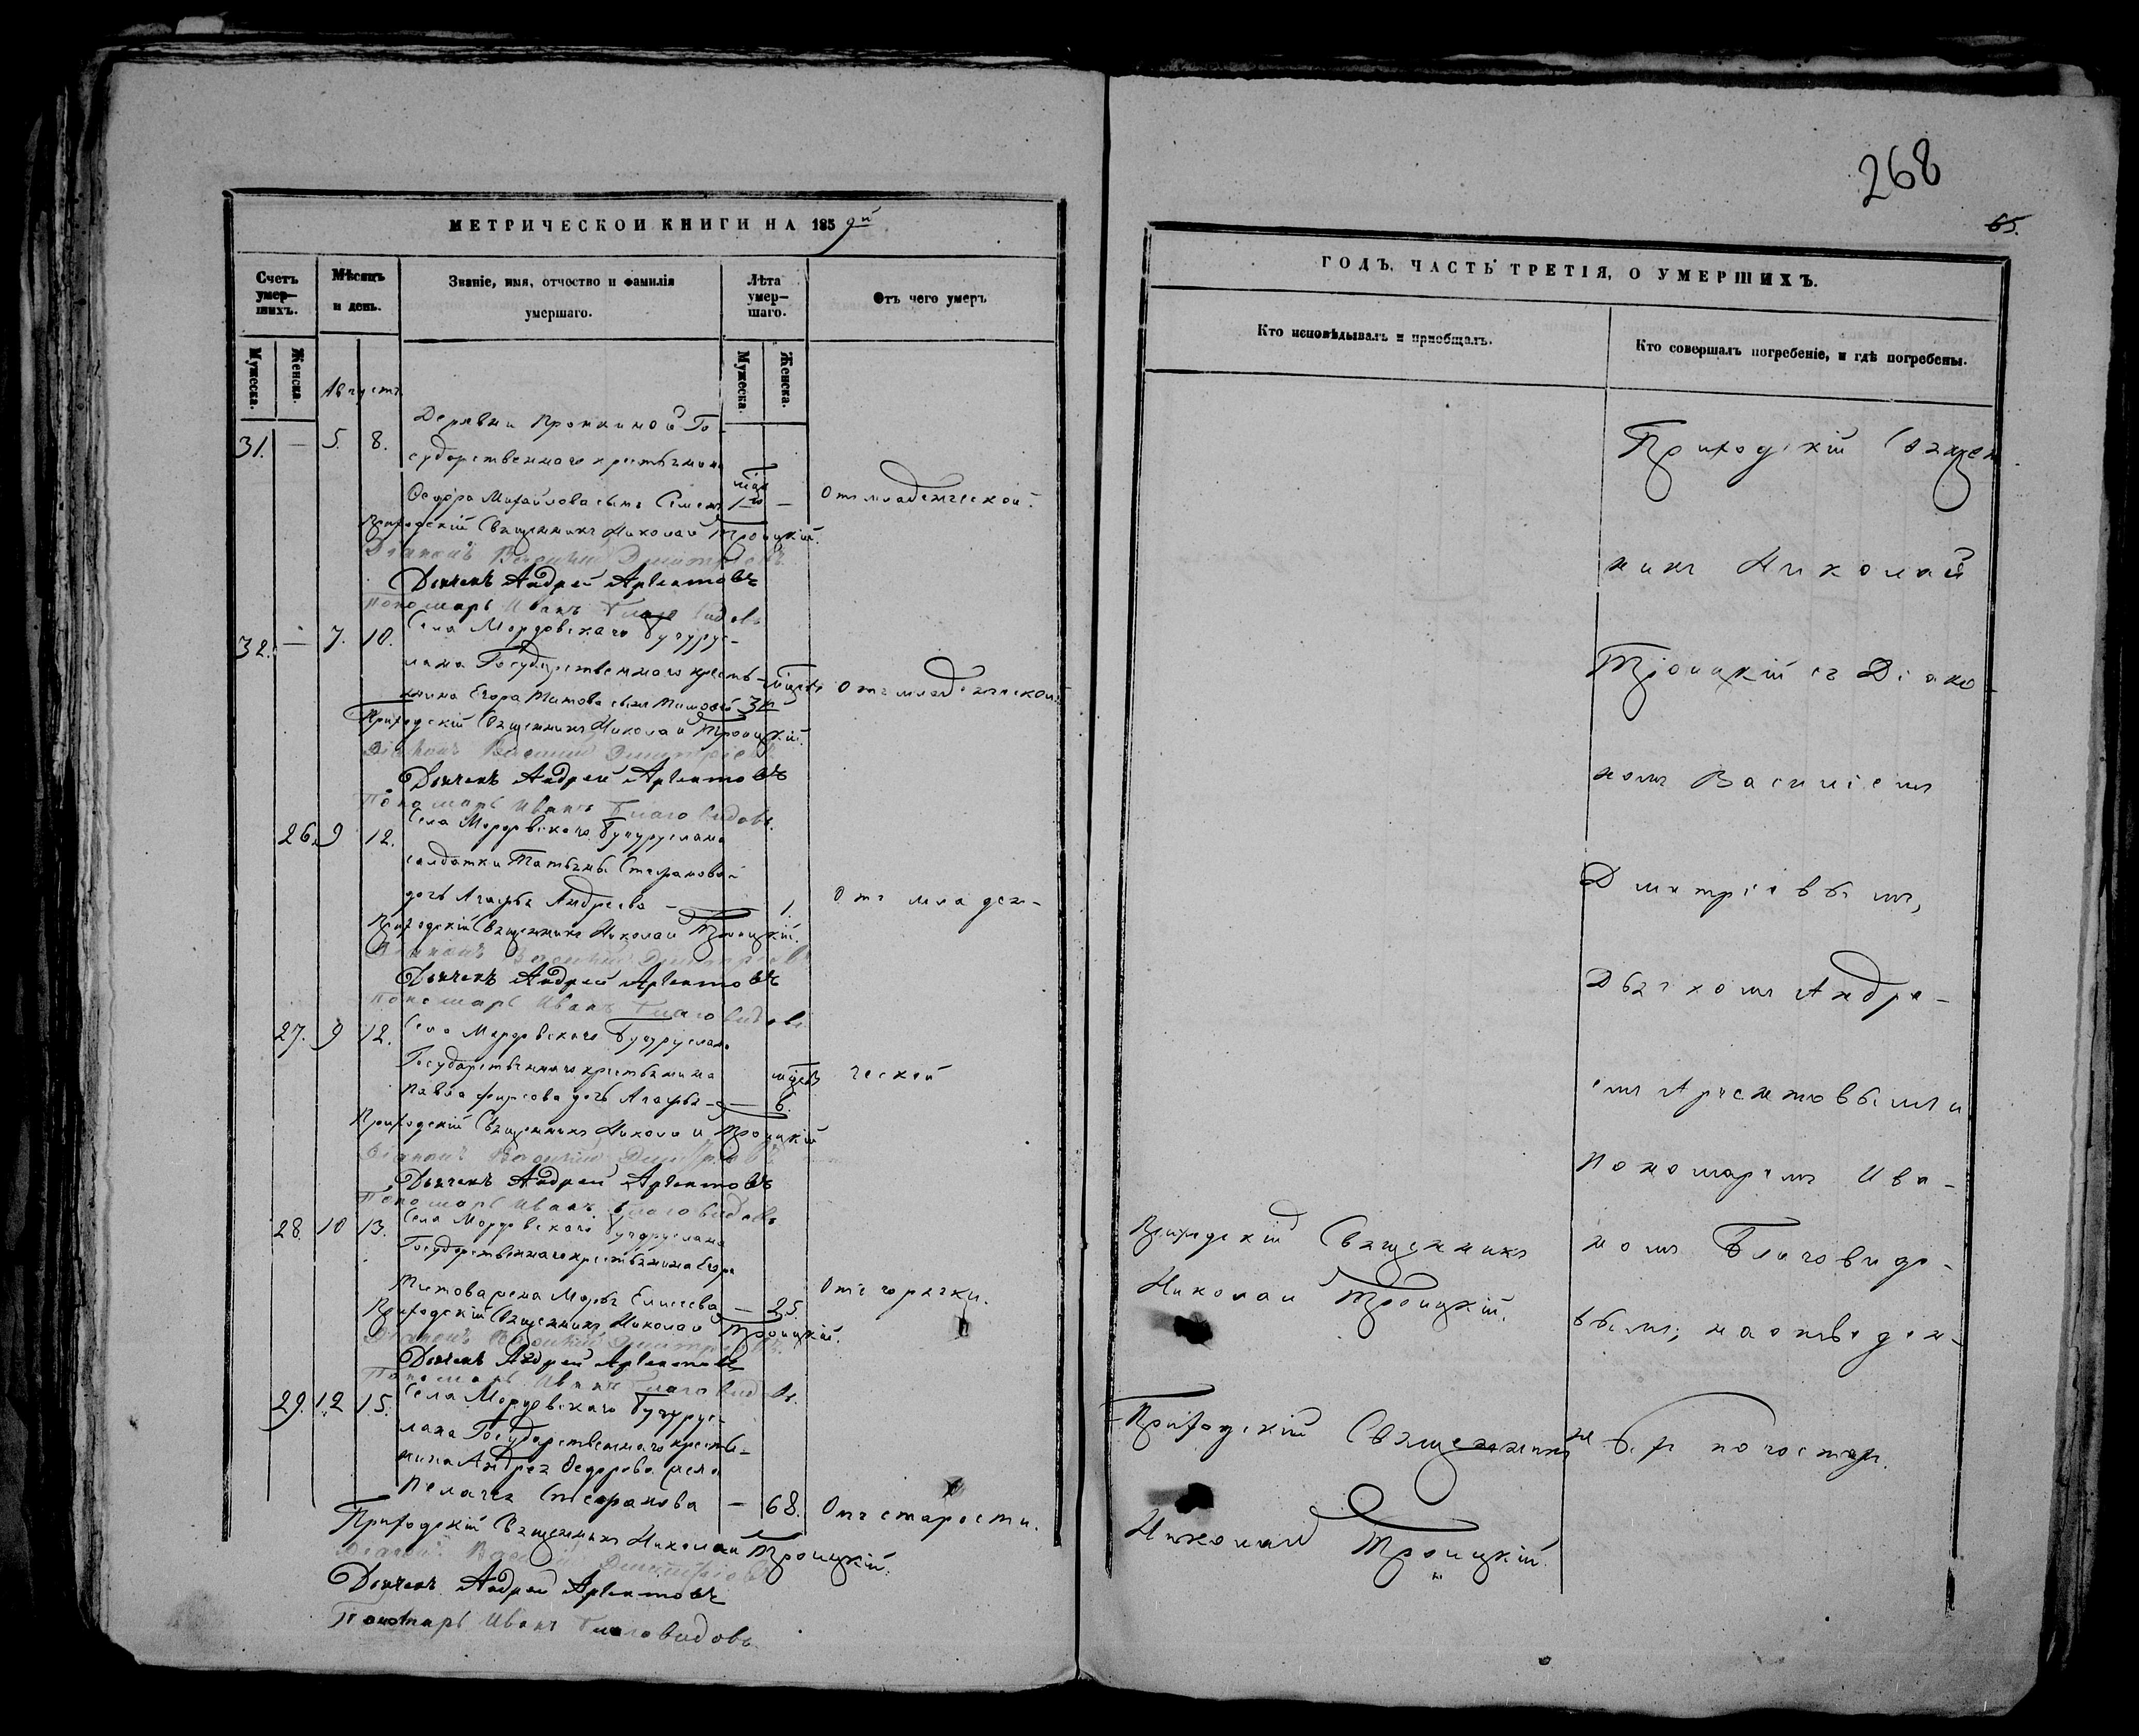 МЕТРИЧЕСКОЙ КНИГИ НА 1859й
Счетъ умер-
шихъ.
Мѣсяцъ
и день.
Званіе, имя, отчество и фамилія
умершаго.
Лѣта
умер-
шаго.
Отъ чего умеръ
Мужеска.
Женска.
Мужеска.
Женска.
Августъ
Деревни Пронкиной Го-
31. — 5. 8.
сударственнаго крестьянина
Ѳедора Михайлова сынъ Семенъ 1 — Отъ младенческой.
Приходскій Священникъ Николай Троицкій.
Діаконъ Василій Димитріевъ
Дьячекъ Андрей Арсентовъ
Пономарь Иванъ Благовидовъ
Села Мордовскаго Бугурус-
32. — 7. 10.
лана Государственнаго кресть-
янина Егора Титова сынъ 3 Отъ младенческой.
Приходскій Священникъ Николай Троицкій.
Діаконъ Василій Димитріевъ
Дьячекъ Андрей Арсентовъ
Пономарь Иванъ Благовидовъ.
26. 9 12. Села Мордовскаго Бугуруслана
солдатки Татьяны Стефановой
дочь Агафья Андреева — 1. Отъ младен-
Приходскій Священникъ Николай Троицкій.
Діаконъ Василій Димитріевъ
Дьячекъ Андрей Арсентовъ
Пономарь Иванъ Благовидовъ
27. 9 12. Села Мордовскаго Бугуруслана
Государственнаго крестьянина ческой
Павла дочь Агафья — 6.
Приходскій Священникъ Николай Троицкій
Діаконъ Василій Димитріевъ
Дьячекъ Андрей Арсентовъ
Пономарь Иванъ Благовидовъ
28. 10 13. Села Мордовскаго Бугуруслана
Государственнаго крестьянина Егора
Титова жена Марья Елисеева — 25. Отъ горячки.
Приходскій Священникъ Николай Троицкій.
Діаконъ Василій Димитріевъ.
Дьячекъ Андрей Арсентовъ
Пономарь Иванъ Благовидовъ.
29. 12 15. Села Мордовскаго Бугурус-
лана Государственнаго кресть-
нина Андрея Ѳедорова жена
Пелагея Стефанова — 68. Отъ старости.
Приходскій Священникъ Николай Троицкій.
Діаконъ Василій Димитріевъ
Дьячекъ Андрей Арсентовъ
Пономарь Иванъ Благовидовъ
268
65.
ГОДЪ, ЧАСТЬ ТРЕТІЯ, О УМЕРШИХЪ.
Кто исповѣдывалъ и пріобщалъ.
Кто совершалъ погребеніе, и гдѣ погребены.
Приходскій Священ
никъ Николай
Троицкій съ Діако-
номъ Василіемъ
Димитріевымъ,
Дьячкомъ Андре-
емъ Арсентовымъ и
Пономаремъ Ива-
номъ Благовидо-
вымъ, на отведен-
номъ погостѣ.
Приходскій Священникъ
Николай Троицкій.
Приходскій Священникъ
Николай Троицкій.